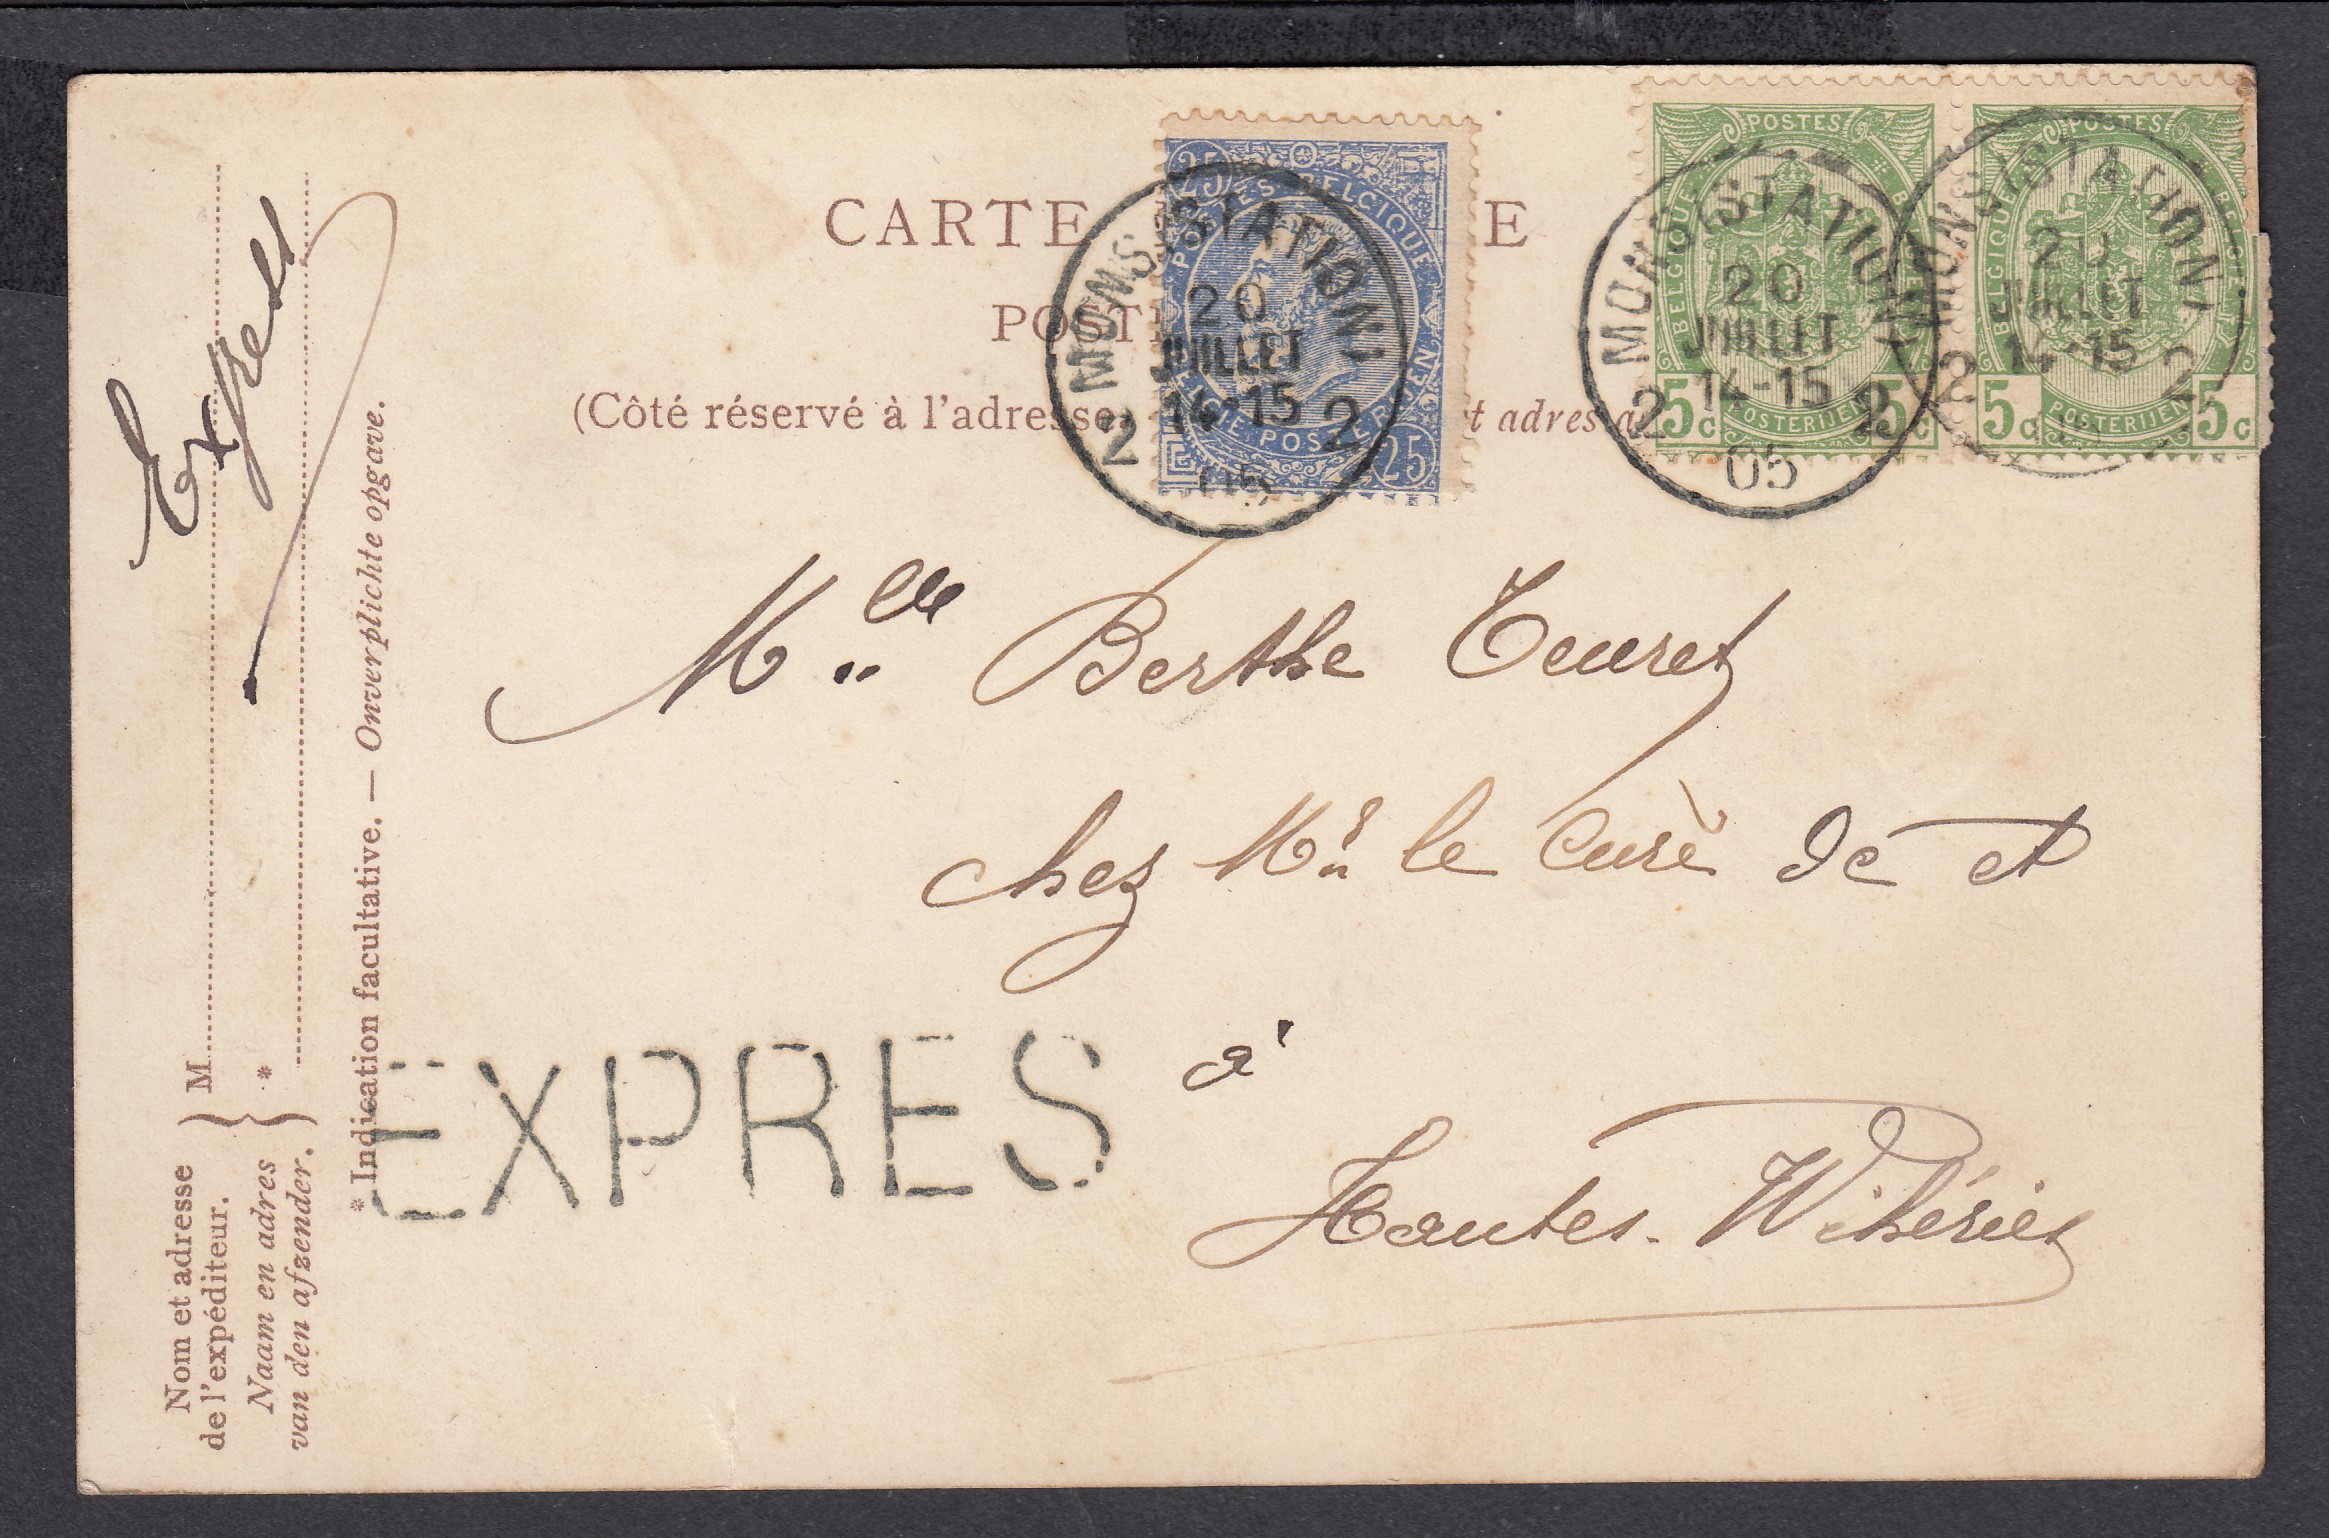 CARTE E
POST
(Côté réservé à l'adresse. t adres a
25 POSTES BELGIQUE
BELGIE POSTERIJEN 25
MONS (STATION)
20
JUILLET
14-15
2 2
05
POSTES
BELGIQUE
5c POSTERIJEN 5c
MONS (STATION)
20
JUILLET
14-15
2 2
05
POSTES
BELGIQUE
5c POSTERIJEN 5c
MONS (STATION)
20
JUILLET
14-15
2 2
Express
Nom et adresse
de l'expéditeur.
Naam en adres
van den afzender.
M
*
* Indication facultative. — Onverplichte opgave.
Melle Berthe Teuret
chez Mr. le Curé de et
EXPRES
à
Hautes-Wihéries